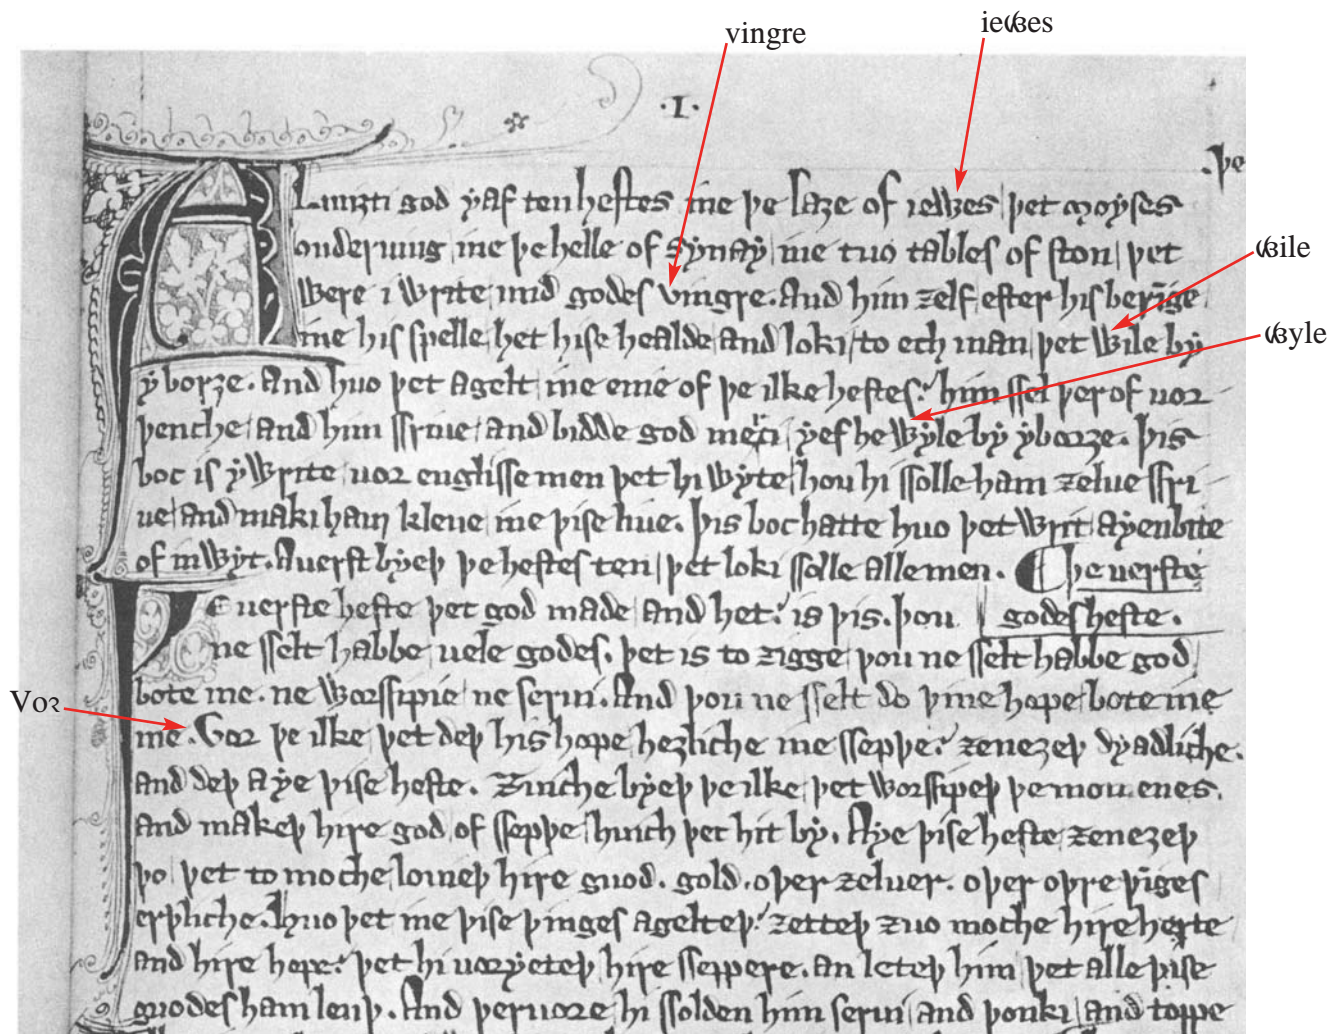 vingre
iewes
·I·
.þe
ALmiȝti god yaf ten heſtes / ine þe laȝe of iewes / þet moyſes
onderuing / ine þe helle of Synay / ine tuo tables of ſton / þet
were i write / mid godes vingre. And him zelf efter his beringe
ine his ſpelle / het hiſe healde / and loki / to ech man / þet wile by
wile
wyle
y borȝe. And huo þet agelt / ine enie of þe ilke heſtes: him ſſel þerof uoꝛ
þenche / and him ſſriue / and bidde god merci / yef he wyle by yboꝛȝe. Þis
boc is ywrite / uoꝛ engliſſe men þet hi wyte / hou hi ſſolle ham zelue ſſri
ue / and maki ham klene / ine þiſe liue. Þis boc hatte huo þet writ / ayenbite
of inwyt. Auerſt byeþ þe heſtes ten / þet loki ſſolle alle men. þe uerſte
ÞE uerſte heſte þet god made / and het: is þis. Þou godes heſte.
ne ſſelt habbe / uele godes. þet is to zigge / þou ne ſſelt habbe god
bote me. ne woꝛſſipie / ne ſerui. And þou ne ſſelt do þine hope / bote ine
Voꝛ
me. Voꝛ þe ilke / þet deþ his hope / heȝliche ine ſſeppe: zeneȝeþ dyadliche.
and deþ aye þiſe heſte. Zuiche byeþ þe ilke / þet woꝛſſipeþ þe momenes.
and makeþ hire god / of ſſeppe / huich þet hit by. Aye þiſe heſte / zeneȝeþ
þo / þet to moche / louieþ hire guod. gold. oþer zeluer. oþer oþre þinges
erþliche. Huo þet ine þiſe þinges agelteþ: zetteþ zuo moche hire herte
and hire hope: þet hi uoꝛyeteþ hire ſſeppere. an leteþ him þet alle þiſe
guodes ham lenþ. And þeruoꝛe hi ſſolden him ſerui / and þonki / and toppe